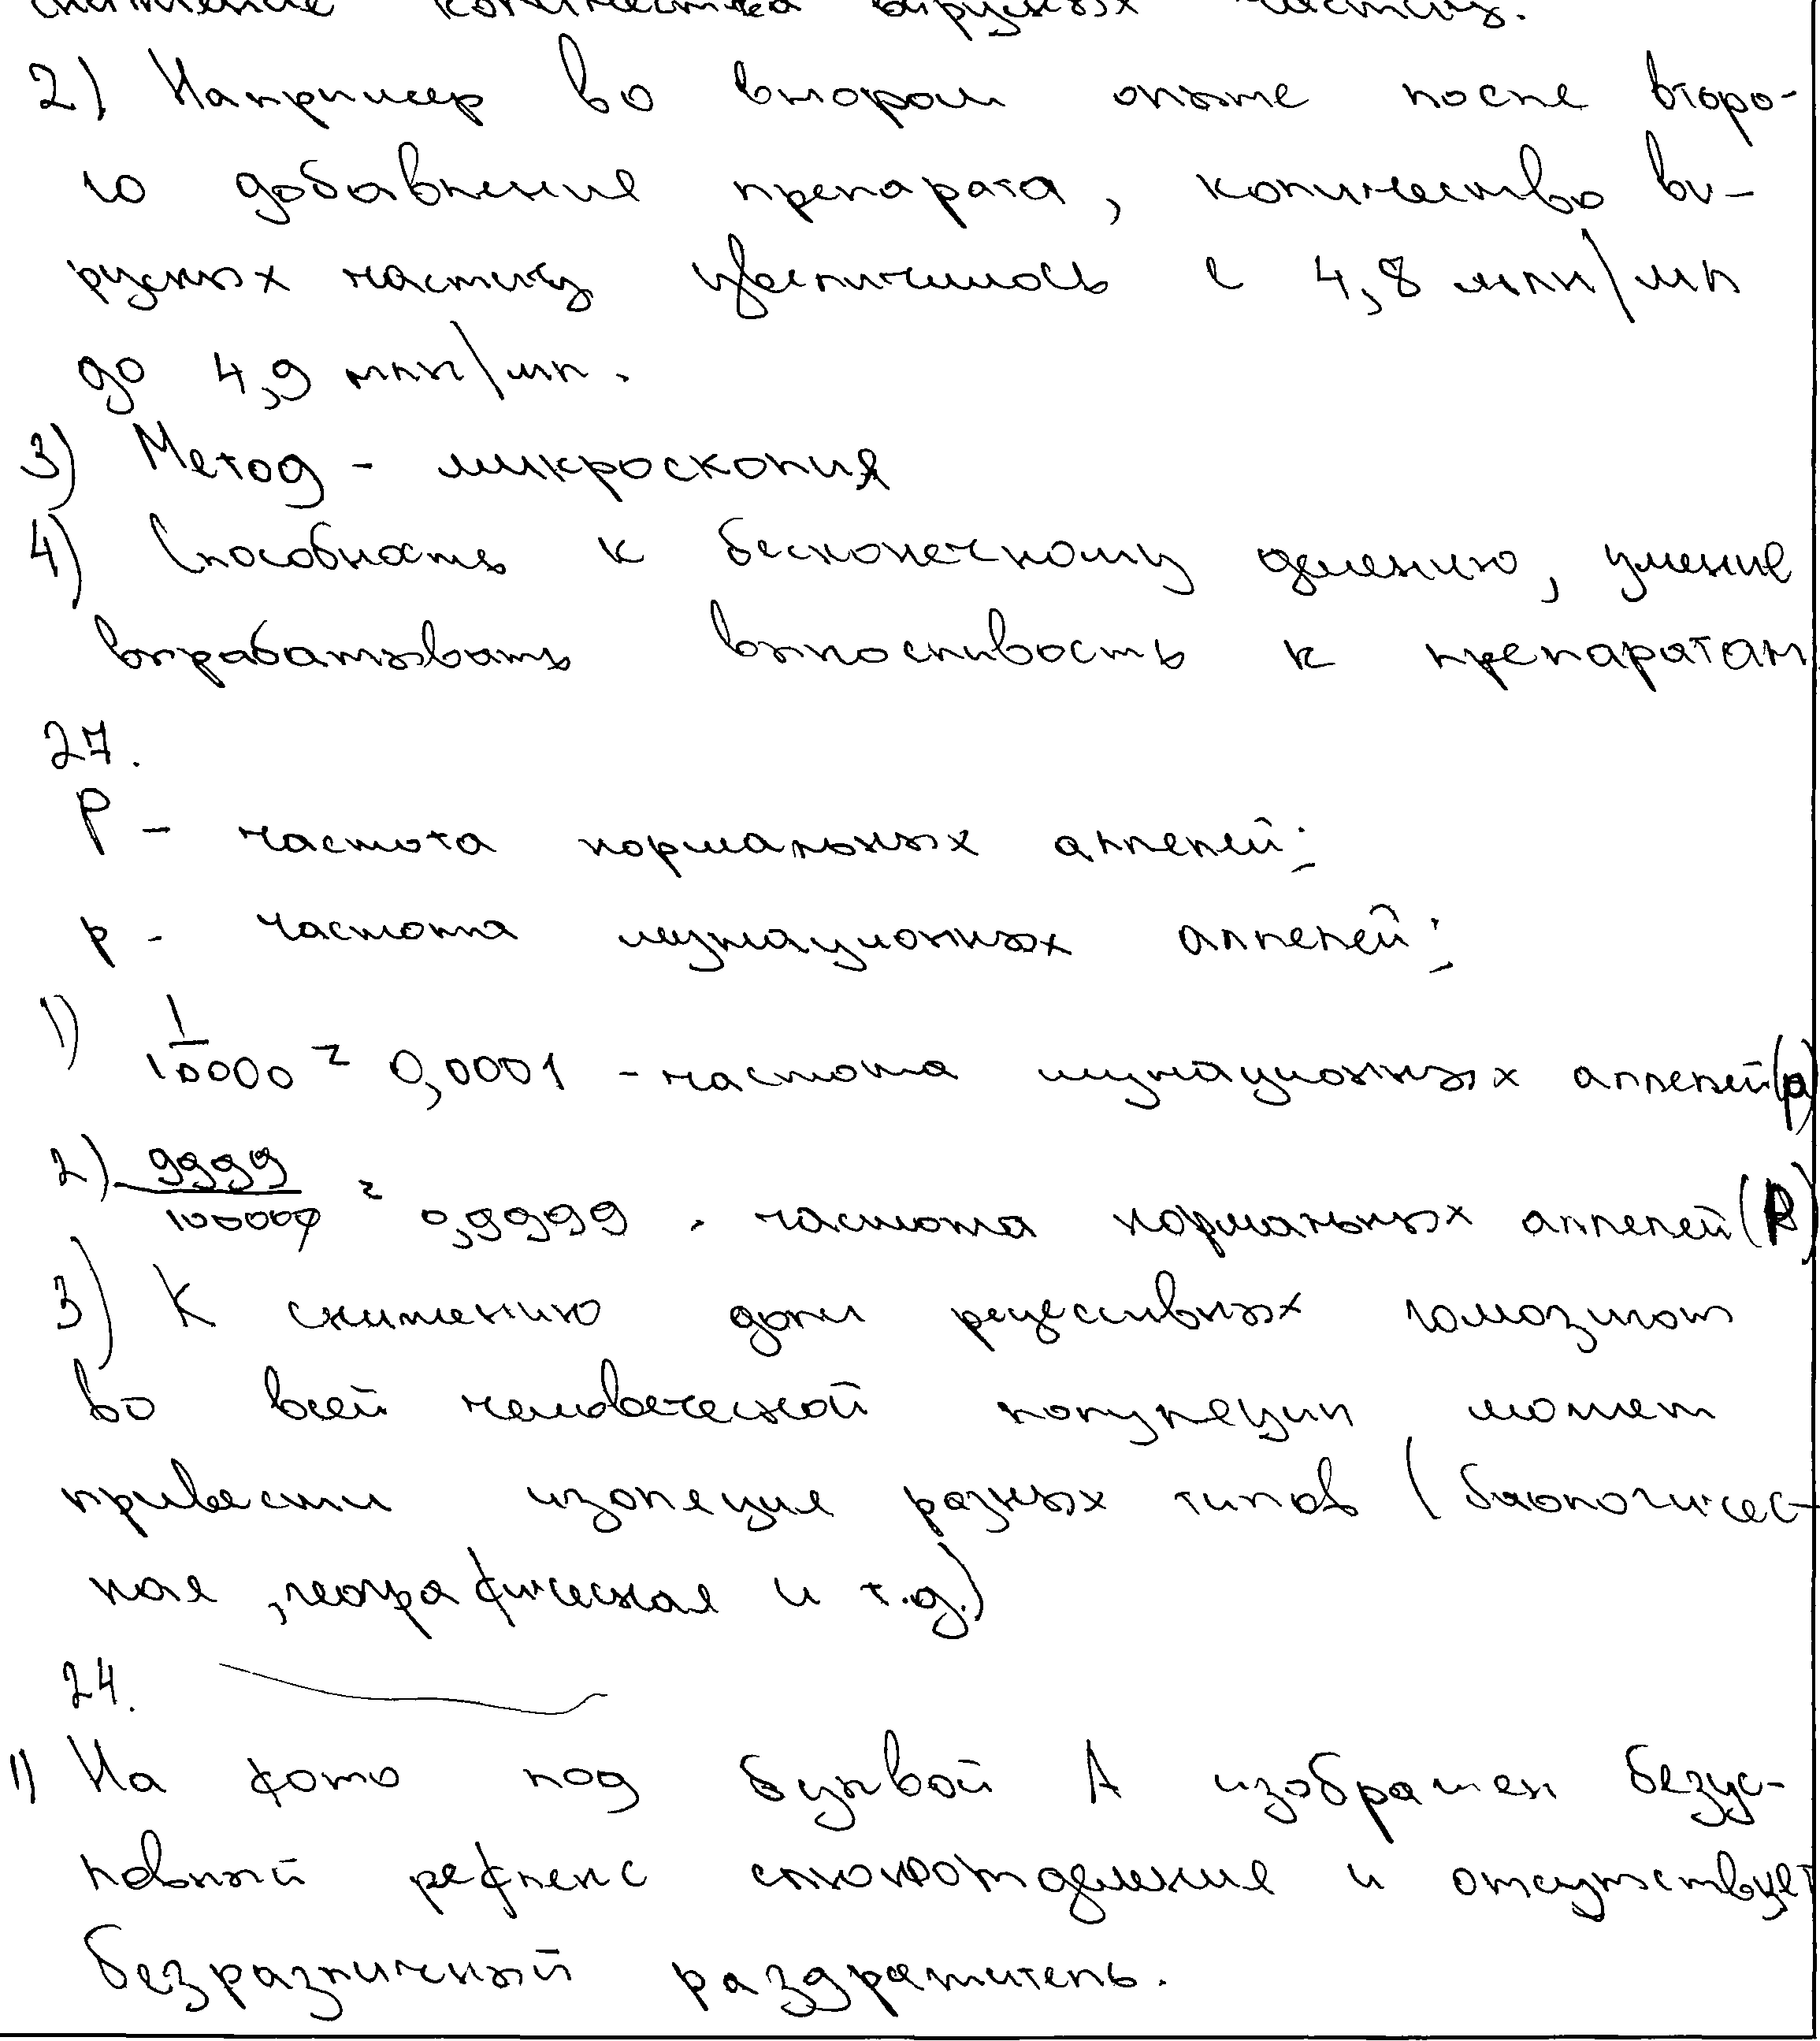 количества вирусных частиц.
2) Например во втором опыте после второ-
го добавления препарата, количество ви-
русных частиц увеличилось с 4,8 млн/мл
до 4,9 млн/мл.
3) Метод - микроскопия
4) Способность к бесконечному делению, умение
вырабатывать выносливость к препаратам
27.
P - частота нормальных аллелей;
p - частота мутационных аллелей;
1) 1/10000 = 0,0001 - частота мутационных аллелей (p)
2) 9999/10000 = 0,9999 - частота нормальных аллелей (P)
3) К снижению доли рецессивных гомозигот
во всей человеческой популяции может
привести изоляция разных типов (биологичес-
кая, географическая и т.д.)
24.
1) На фото под буквой А изображен безус-
ловный рефлекс слюноотделения и отсутствует
безразличный раздражитель.